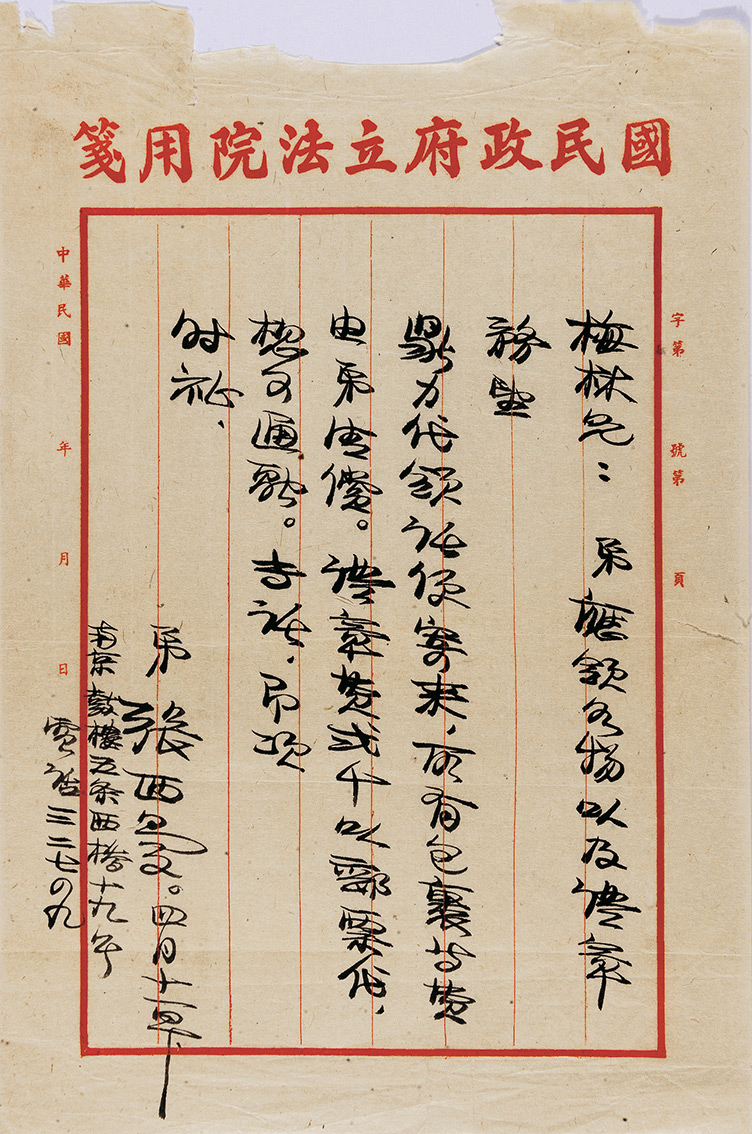 國民政府立法院用箋
字第 號第 頁
梅林兄：弟應領各物以及證章
務望
鼎力代領託便寄來，所有包裹等費
由弟清償。證章費弍千以郵票代，
想可通融。專託，即頌
時祉、
弟 張西曼。四月十一日
南京鼓樓五條西橋十九号
電話三二七〇九
中華民國 年 月 日